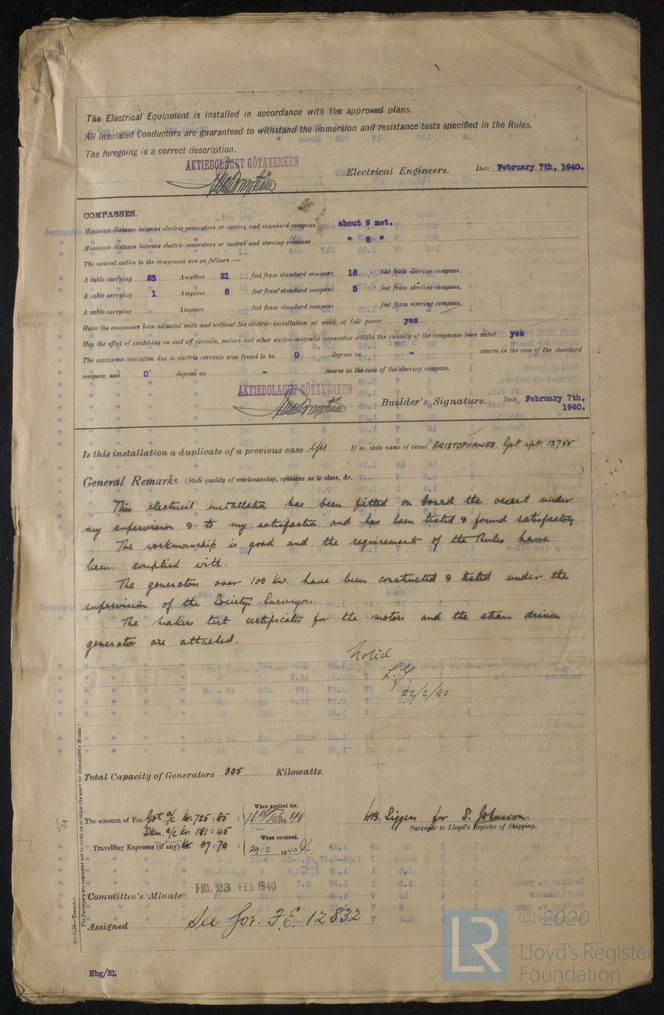 The Electrical Equipment is installed in accordance with the approved plans.
All Insulated Conductors are guaranteed to withstand the immersion and resistance tests specified in the Rules.
The foregoing is a correct description.
AKTIEBOLAGET GÖTAVERKEN
Electrical Engineers. Date February 7th, 1940.
COMPASSES.
Minimum distance between electric generators or motors and standard compass about 9 met.
Minimum distance between electric generators or motors and steering compass " 8 "
The nearest cables to the compasses are as follows:—
A cable carrying 25 Ampères 21 feet from standard compass 18 feet from steering compass.
A cable carrying 1 Ampères 8 feet from standard compass 5 feet from steering compass.
A cable carrying Ampères feet from standard compass feet from steering compass.
Have the compasses been adjusted with and without the electric installation at work at full power yes
Has the effect of switching on and off circuits, motors and other electro-magnetic apparatus within the vicinity of the compasses been noted yes
The maximum deviation due to electric currents was found to be 0 degrees on - course in the case of the standard
compass, and 0 degrees on - course in the case of the steering compass.
AKTIEBOLAGET GÖTAVERKEN
Builder's Signature. Date February 7th,
1940.
Is this installation a duplicate of a previous case Yes If so, state name of vessel ARISTOPHANES. Got rpt. 12755
General Remarks (State quality of workmanship, opinions as to class, &c.
This electrical installation has been fitted on board the vessel under
my supervision & to my satisfaction and has been tested & found satisfactory
The workmanship is good and the requirement of the Rules have
been complied with.
The generators over 100 Kw. have been constructed & tested under the
supervision of the Society's Surveyors.
The makers test certificates for the motors and the steam driven
generator are attached.
Noted
22/2/40
Total Capacity of Generators 305 Kilowatts.
The amount of Fee Got. a/c Kr. 725:85 : When applied for,
Stkm. a/c Kr. 181:45 16th Febr. 1940
Travelling Expenses (if any) Kr. 37:70 : When received,
29.2.1940
H.B. Siggers for S. Johnson.
Surveyor to Lloyd's Register of Shipping.
Committee's Minute FRI. 23 FEB 1940
Assigned See Got. F.E. 12832
Hbg/RL
LR
© 2020
Lloyd's Register
Foundation